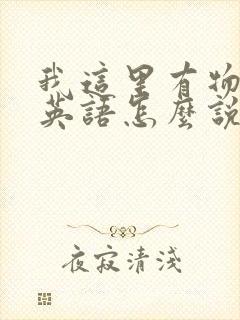 我這里有物
英語怎麼說
夜寂清淺